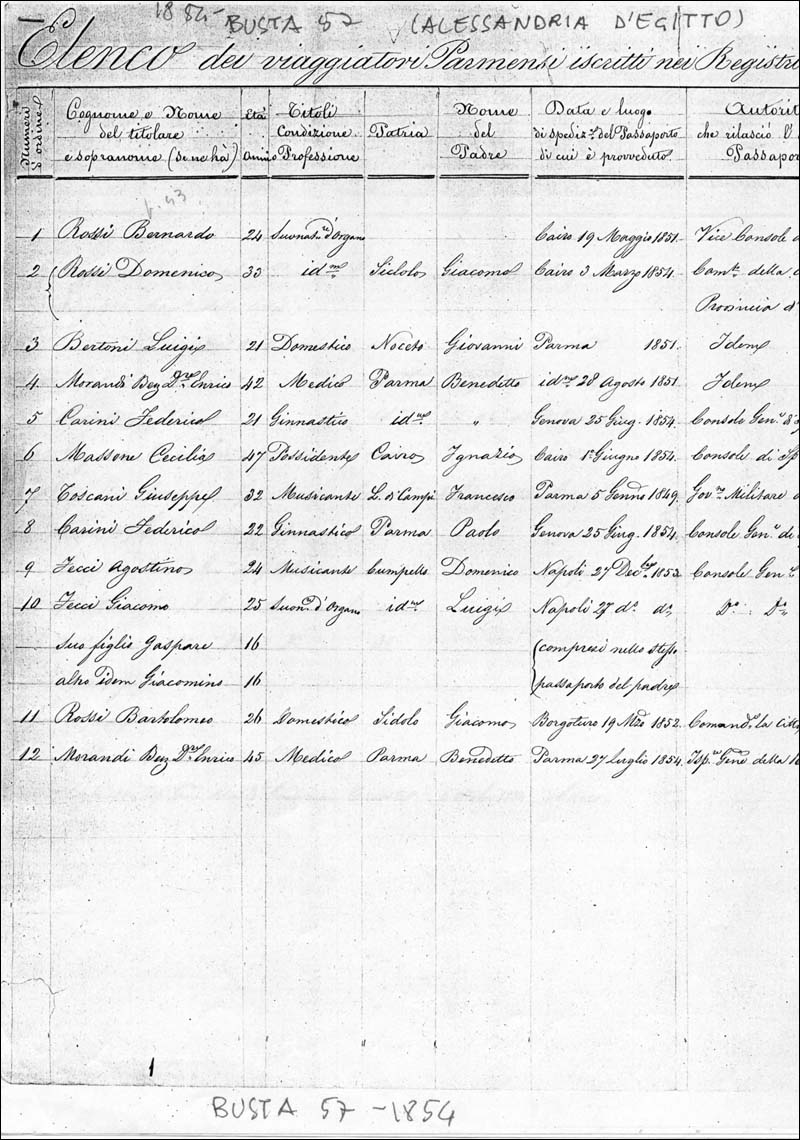 1854 - BUSTA 57 (ALESSANDRIA D'EGITTO)
Elenco dei viaggiatori Parmensi iscritti nei Registri
Numeri d'ordine
Cognome e Nome del titolare e sopranome (se ne ha)
Età Anni
Titoli Condizione Professione
Patria
Nome del Padre
Data e luogo di spediz.e del Passaporto di cui è provveduto
Autorit
che rilasciò l'
Passapor
f. 43
1 Rossi Bernardo 24 Suonat.re d'Organo Cairo 19 Maggio 1851. Vice Console
2 Rossi Domenico 33 id.m Giacomo Cairo 3 Marzo 1854. della
Provincia d'
3 Bertoni Luigi 21 Domestico Noceto Giovanni Parma 1851. Idem
4 Morandi Bez D.re Enrico 42 Medico Parma Benedetto id.m 28 Agosto 1851. Idem
5 Carini Federico 21 Ginnastico id.m " Genova 25 Giug. 1854. Console Gen.e di
6 Massone Cecilia 47 Possidente Cairo Ignazio Cairo 1.o Giugno 1854. Console di
7 Toscani Giuseppe 32 Musicante L. di Campi Francesco Parma 5 Genn.o 1849. Gov.re Militare
8 Carini Federico 22 Ginnastico Parma Paolo Genova 25 Giug. 1854. Console Gen.e di
9 Fecci Agostino 24 Musicante Cumpello Domenico Napoli 27 Dec.bre 1853. Console Gen.e
10 Fecci Giacomo 25 Suon.re d'Organo id.m Luigi Napoli 27 d.o d.o D.o D.o
suo figlio Gaspare 16 (compresi nello stesso
altro idem Giacomino 16 passaporto del padre
11 Rossi Bartolomeo 26 Domestico Sidolo Giacomo Borgotaro 19 Mzo 1852. Comand.e la Citt
12 Morandi Bez D.re Enrico 45 Medico Parma Benedetto Parma 27 Luglio 1854. Isp.re Gen.e della
1
BUSTA 57 - 1854